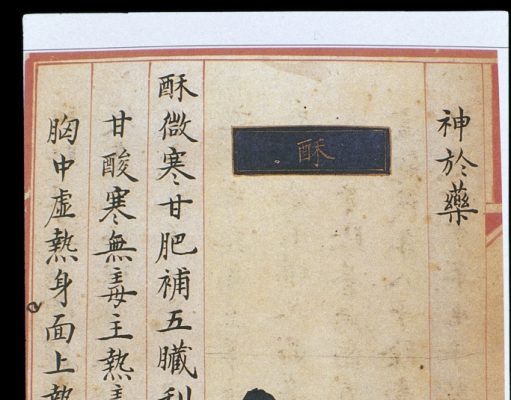 神於藥
酥
酥微寒甘肥補五臟利
甘酸寒無毒主熱
胸中虛熱身面上熱